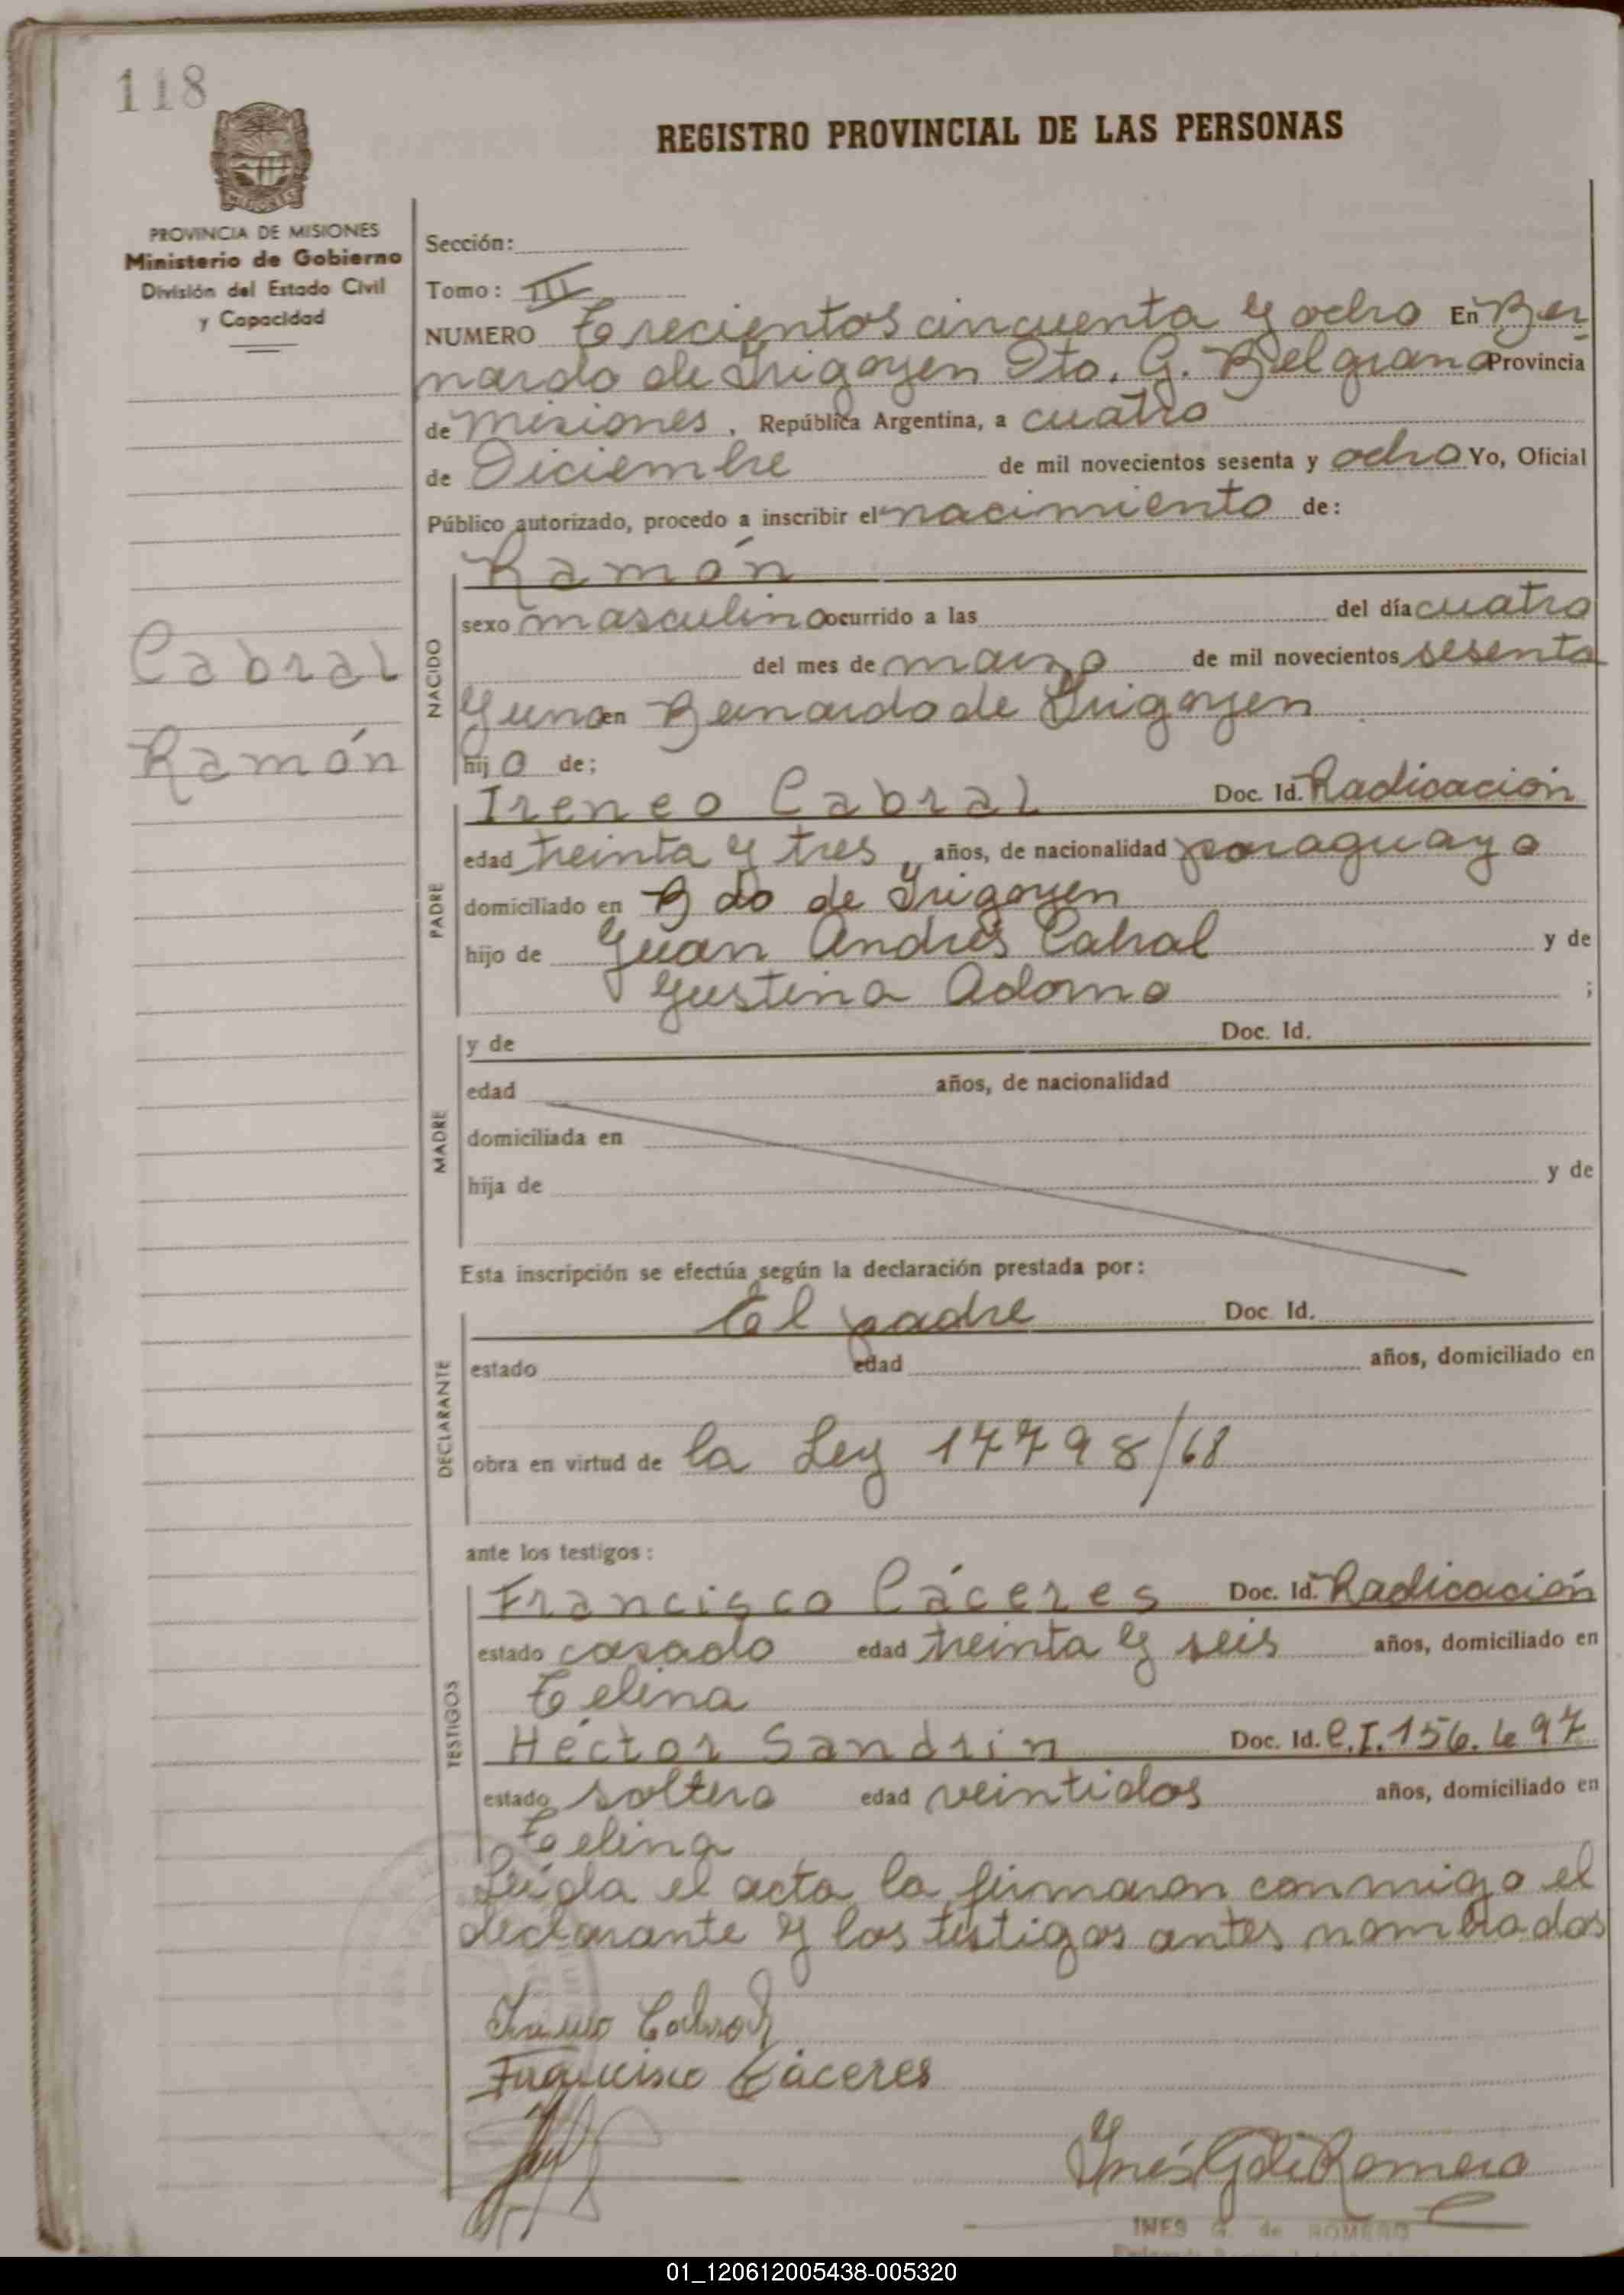 118
REGISTRO PROVINCIAL DE LAS PERSONAS
PROVINCIA DE MISIONES
Ministerio de Gobierno
División del Estado Civil
y Capacidad
Cabral
Ramón
Sección:
Tomo: III
NUMERO Trecientos cincuenta y ocho En Ber
nardo de Irigoyen Dto. G. Belgrano Provincia
de misiones, República Argentina, a cuatro
de Diciembre de mil novecientos sesenta y ocho Yo, Oficial
Público autorizado, procedo a inscribir el nacimiento de:
NACIDO
Ramón
sexo masculino ocurrido a las del día cuatro
del mes de marzo de mil novecientos sesenta
y uno en Bernardo de Irigoyen
hijo de;
PADRE
Ireneo Cabral Doc. Id. Radicación
edad treinta y tres, años, de nacionalidad paraguayo
domiciliado en Bdo de Irigoyen
hijo de Juan Andrés Cabral y de
Justina Adorno ;
MADRE
y de Doc. Id.
edad años, de nacionalidad
domiciliada en
hija de y de
Esta inscripción se efectúa según la declaración prestada por:
DECLARANTE
El padre Doc. Id.
estado edad años, domiciliado en
obra en virtud de la Ley 17798/68
ante los testigos:
TESTIGOS
Francisco Cáceres Doc. Id. Radicación
estado casado edad treinta y seis años, domiciliado en
Telina
Héctor Sandrin Doc. Id. C.I. 156.697
estado soltero edad veintidos años, domiciliado en
Telina
Leída el acta la firmaron conmigo el
declarante y los testigos antes nombrados
Ireneo Cabral
Francisco Cáceres
Inés G de Romero
INES G. de ROMERO
01_120612005438-005320